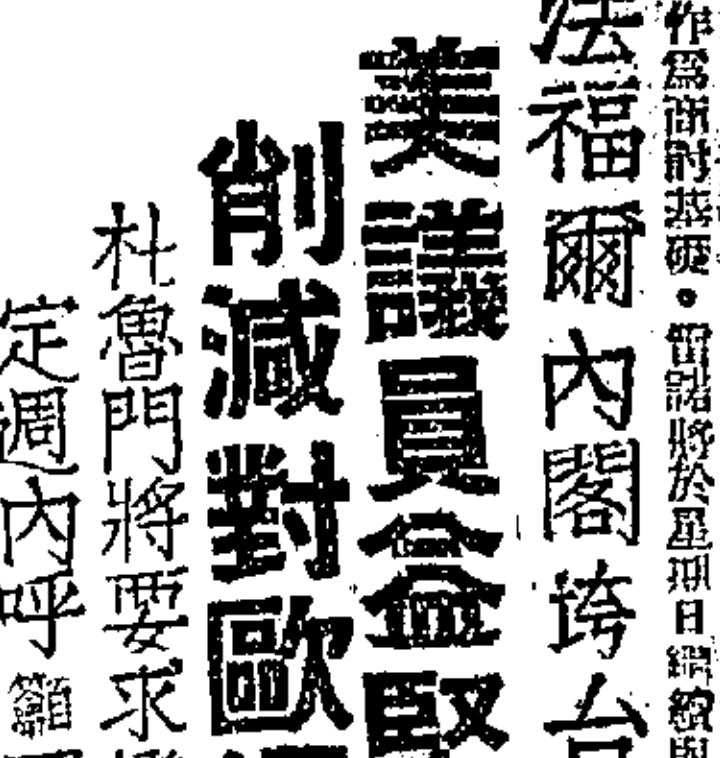 作爲商討基礎。雷諾將於星期日繼續與
法福爾內閣垮台
美議員僉堅
削減對歐
杜魯門將要求
定週內呼籲